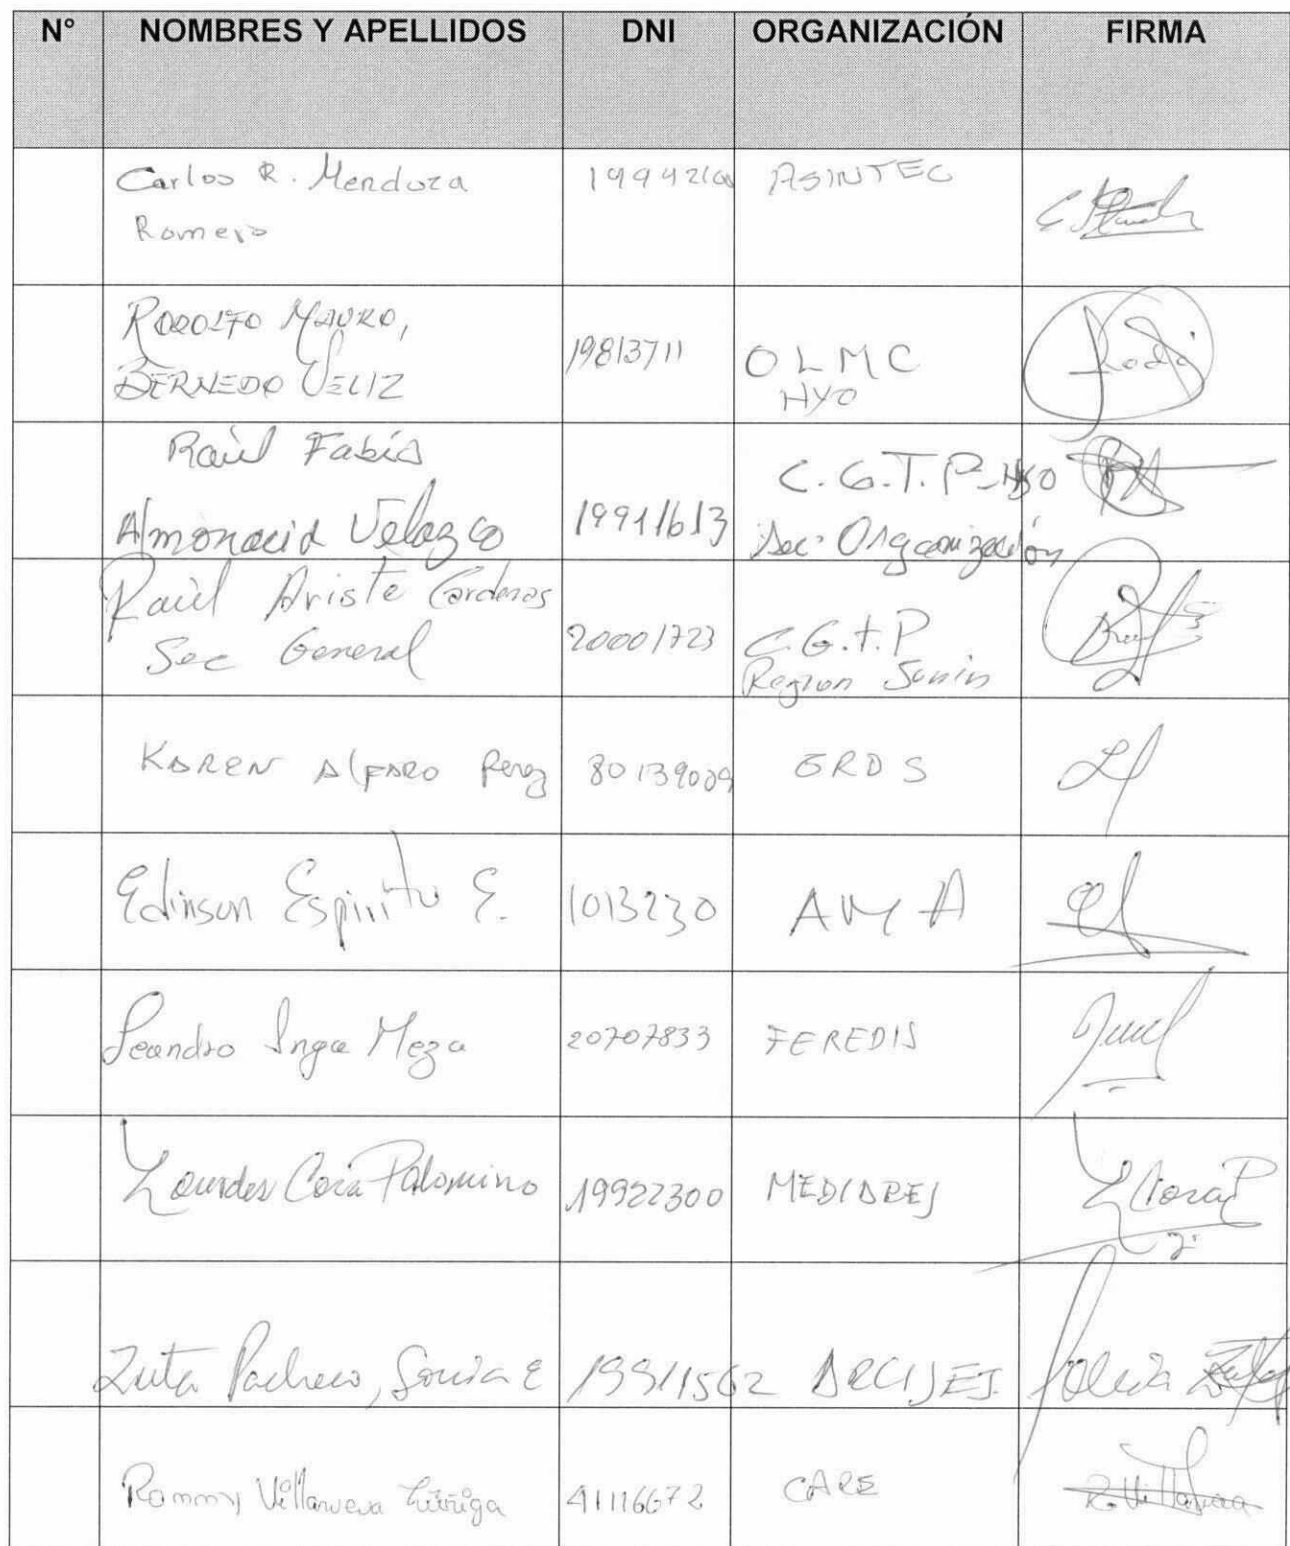 N° NOMBRES Y APELLIDOS DNI ORGANIZACIÓN FIRMA
Carlos R. Mendoza 199421 ASINTEC
Romero
RODOLFO MAURO,
BERNEDO VELIZ 19813711 OLMC
HYO
Raúl Fabis C.G.T.P-HYO
Almonacid Velazco 19911613 Sec. Organización
Raúl Ariste Cardenas
Sec General 20001723 C.G.t.P
Region Junin
KAREN AlFARO Perez 80139009 GRDS
Edinson Espiritu E. 1013230 AMA
Leandro Inga Meza 20707833 FEREDIS
Lourdes Cora Palomino 19922300 MEDIAREJ
Zuta Pacheco, Sonia E 19911562 ARCIJEJ.
Rommy Villanueva 41116672 CARE